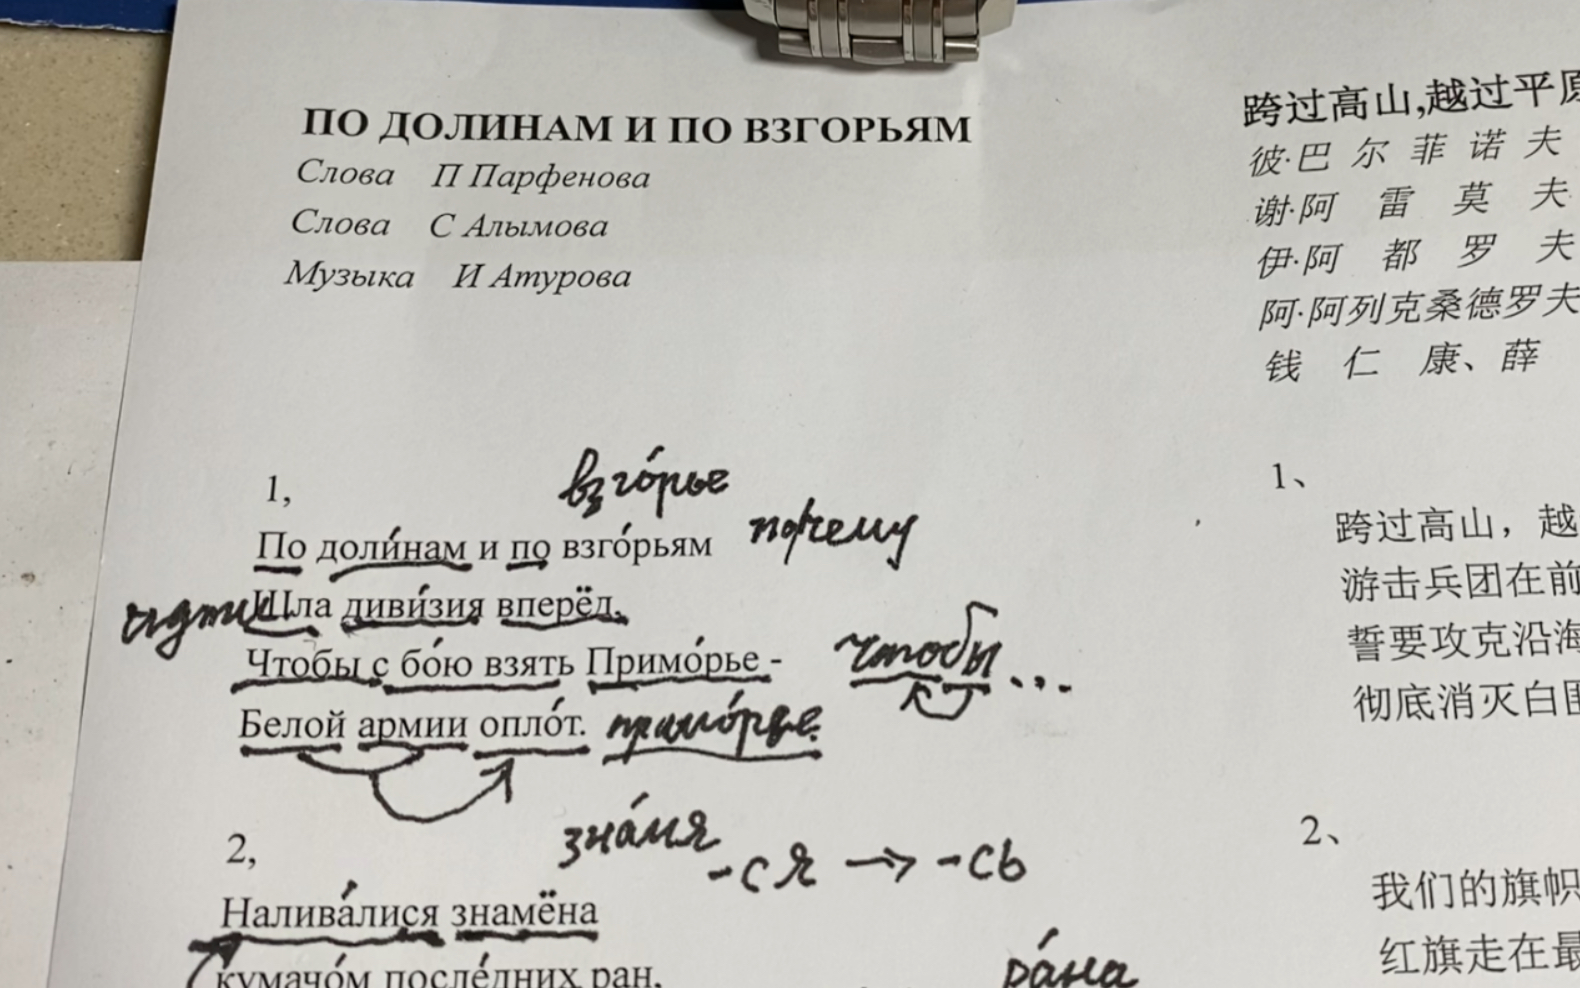 ПО ДОЛИНАМ И ПО ВЗГОРЬЯМ
Слова П Парфенова
Слова С Алымова
Музыка И Атурова
1,
взго́рье
По доли́нам и по взго́рьям почему
идти Шла диви́зия вперёд,
Чтобы с бо́ю взять Примо́рье - чтобы ...
Белой армии опло́т. примо́рье.
2,
зна́мя
-ся → -сь
Налива́лися знамёна
кумачо́м после́дних ран,
ра́на
跨过高山,越过平原
彼·巴 尔 菲 诺 夫
谢·阿 雷 莫 夫
伊·阿 都 罗 夫
阿·阿列克桑德罗夫
钱 仁 康、薛
1、
跨过高山，越
游击兵团在前
誓要攻克沿海
彻底消灭白匪
2、
我们的旗帜
红旗走在最